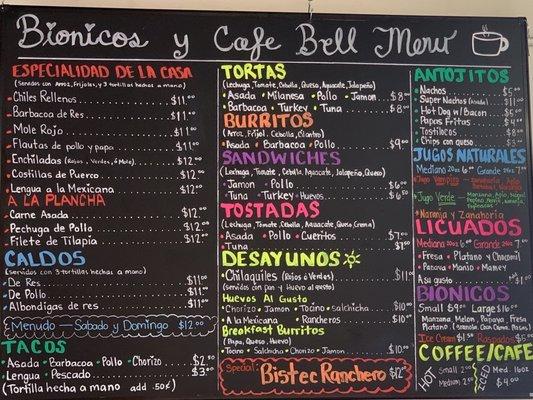 Bionicos y Cafe Bell Menu
ESPECIALIDAD DE LA CASA
(Servidos con Arroz, Frijoles, y 3 tortillas hechas a mano)
Chiles Rellenos $11.00
Barbacoa de Res $11
Mole Rojo $11
Flautas de pollo y papa $11
Enchiladas (Rojas, Verdes, ó Mole) $12.00
Costillas de Puerco $12
Lengua a la Mexicana $12
A LA PLANCHA
Carne Asada $12.00
Pechuga de Pollo $12.00
Filete de Tilapia $12
CALDOS
(servidos con 3 tortillas hechas a mano)
De Res $11.00
De Pollo $11
Albondigas de res $11
Menudo — Sabado y Domingo $12.00
TACOS
Asada Barbacoa Pollo Chorizo $2.00
Lengua Pescado $3.00
(Tortilla hecha a mano add .50¢)
TORTAS
(Lechuga, Tomate, Cebolla, Queso, Aguacate, Jalapeño)
Asada Milanesa Pollo Jamon $8
Barbacoa Turkey Tuna $8
BURRITOS
(Arroz, Frijol, Cebolla, Cilantro)
Asada Barbacoa Pollo $9.00
SANDWICHES
(Lechuga, Tomate, Cebolla, Aguacate, Jalapeño, Queso)
Jamon Pollo $6
Tuna Turkey Huevos $6.50
TOSTADAS
(Lechuga, Tomate, Cebolla, Aguacate, Queso, Crema)
Asada Pollo Cueritos $7
Tuna $7
DESAYUNOS
Chilaquiles (Rojos ó Verdes) $11
(servidos con pan y Huevo al gusto)
Huevos Al Gusto
Chorizo Jamon Tocino salchicha $10
A la Mexicana Rancheros $10
Breakfast Burritos
(Papa, Queso, Huevo)
Tocino Salchicha Chorizo Jamon $10
Special: Bistec Ranchero $12
ANTOJITOS
Nachos $5
Super Nachos (Asada) $11
Hot Dog w/ Bacon $5
Papas Fritas $4
Tostilocos $8
Chips con queso $3
JUGOS NATURALES
Mediano 20oz 6.00 Grande 7
Jugo Vampiro
Jugo Verde
Naranja y Zanahoria
LICUADOS
Mediano 20oz $6 Grande $7
Fresa Platano y Chocomil
Papaya Mango Mamey
Asi gusto $1
BIONICOS
Small $9 Large $10
Manzana, Melon, Papaya, Fresa
Platano (Granola, Coco, Crema, Pasas)
Ice Cream $1.50 Raspados $5
COFFEE/CAFE
HOT Small 2 Medium 2 ICED Med. 16oz $4.00